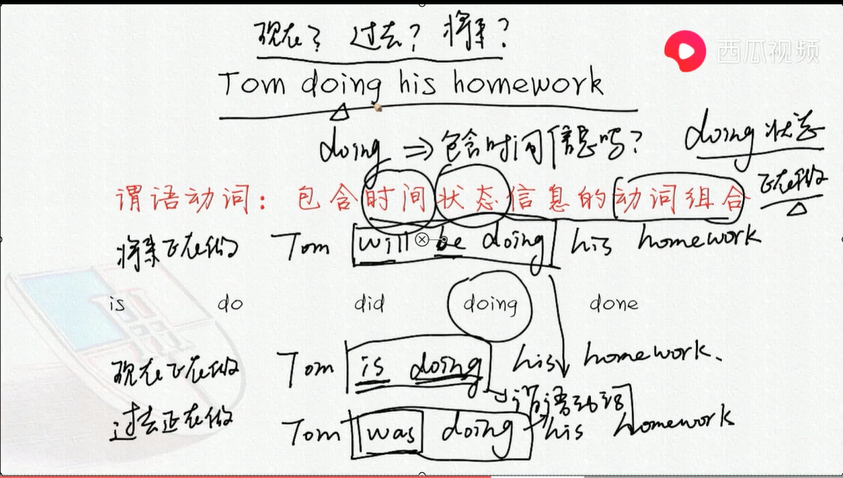 现在？ 过去？ 将来？
西瓜视频
Tom doing his homework
doing ⇒ 包含时间信息吗？
doing 状态
谓语动词：包含时间状态信息的动词组合
正在做
将来正在做 Tom will be doing his homework
is do did doing done
现在正在做 Tom is doing his homework.
谓语动词
过去正在做 Tom was doing his homework